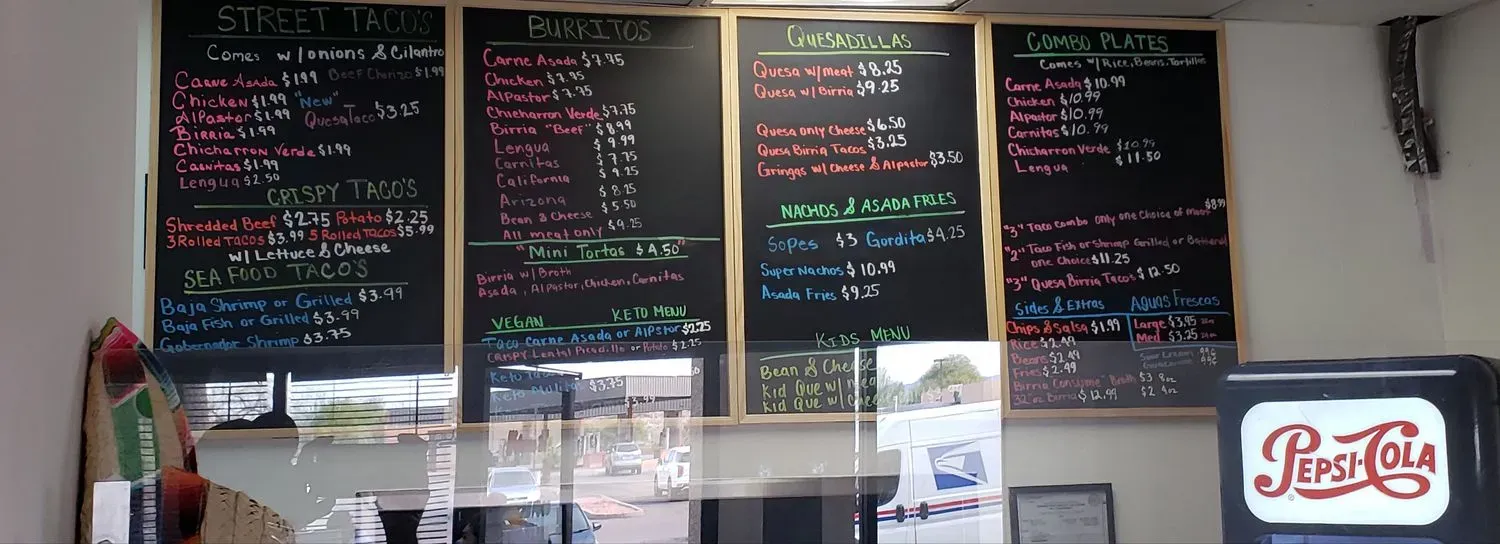 STREET TACO'S
Comes w/onions & Cilantro
Carne Asada $1.99 Beef Chorizo $1.99
Chicken $1.99 "New"
AlPastor $1.99 QuesaTaco $3.25
Birria $1.99
Chicharron Verde $1.99
Carnitas $1.99
Lengua $2.50
CRISPY TACO'S
Shredded Beef $2.75 Potato $2.25
3 Rolled TACOS $3.99 5 Rolled TACOS $5.99
w/ Lettuce & Cheese
SEA FOOD TACO'S
Baja Shrimp or Grilled $3.99
Baja Fish or Grilled $3.99
Gobernador Shrimp $3.75
BURRITOS
Carne Asada $7.75
Chicken $7.75
AlPastor $7.75
Chicharron Verde $7.75
Birria "Beef" $8.99
Lengua $9.99
Carnitas $7.75
California $9.25
Arizona $8.25
Bean & Cheese $5.50
All meat only $9.25
"Mini Tortas $4.50"
Birria w/ Broth
Asada, AlPastor, Chicken, Carnitas
VEGAN KETO MENU
Taco Carne Asada or AlPstor $2.25
Crispy Lental Picadillo or Potato $2.25
Keto
Keto Mulitas $3.75
QUESADILLAS
Quesa w/meat $8.25
Quesa w/ Birria $9.25
Quesa only Cheese $6.50
Quesa Birria Tacos $3.25
Gringas w/ Cheese & Alpastor $3.50
NACHOS & ASADA FRIES
Sopes $3 Gordita $4.25
Super Nachos $10.99
Asada Fries $9.25
KIDS MENU
Bean & Cheese
Kid Que w/ mea
Kid Que w/ chee
COMBO PLATES
Comes w/ Rice, Beans, Tortillas
Carne Asada $10.99
Chicken $10.99
Alpastor $10.99
Carnitas $10.99
Chicharron Verde $10.99
Lengua $11.50
$8.99
"3" Taco combo only one Choice of meat
"2" Taco Fish or Shrimp Grilled or Battered
one Choice $11.25
"3" Quesa Birria Tacos $12.50
Sides & Extras AGUAS FRESCAS
Chips & Salsa $1.99 Large $3.95
Rice $2.49 Med $3.25
Beans $2.49 Sour Cream 99¢
Fries $2.49
Birria Consume "Broth" $3 8oz
32"oz Birria $12.99 $2 4oz
PEPSI-COLA